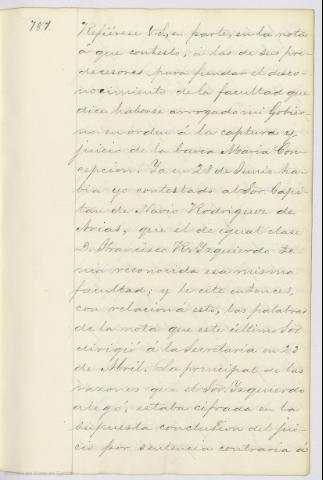 787.
Refiérese V.S, en parte, en la nota
á que contesto, á las de sus pre-
decesores para fundar el desco-
nocimiento de la facultad que
dice haberse arrogado mi Gobier-
no en orden á la captura y
juicio de la barca María Con-
cepcion. Ya en 28 de Junio ha-
bia yo contestado al Sor. Capi-
tan de Navio Rodriguez de
Arias, que el de igual clase
D. Francisco N. Yzquierdo te-
nia reconocida esa misma
facultad; y le cité entonces,
con relacion á esto, las palabras
de la nota que este último Sor.
dirigió á la Secretaria en 23
de Abril. La principal de las
razones que el Sor. Yzquierdo
alegó, estaba cifrada en la
supuesta conclusion del jui-
cio por sentencia contraria á